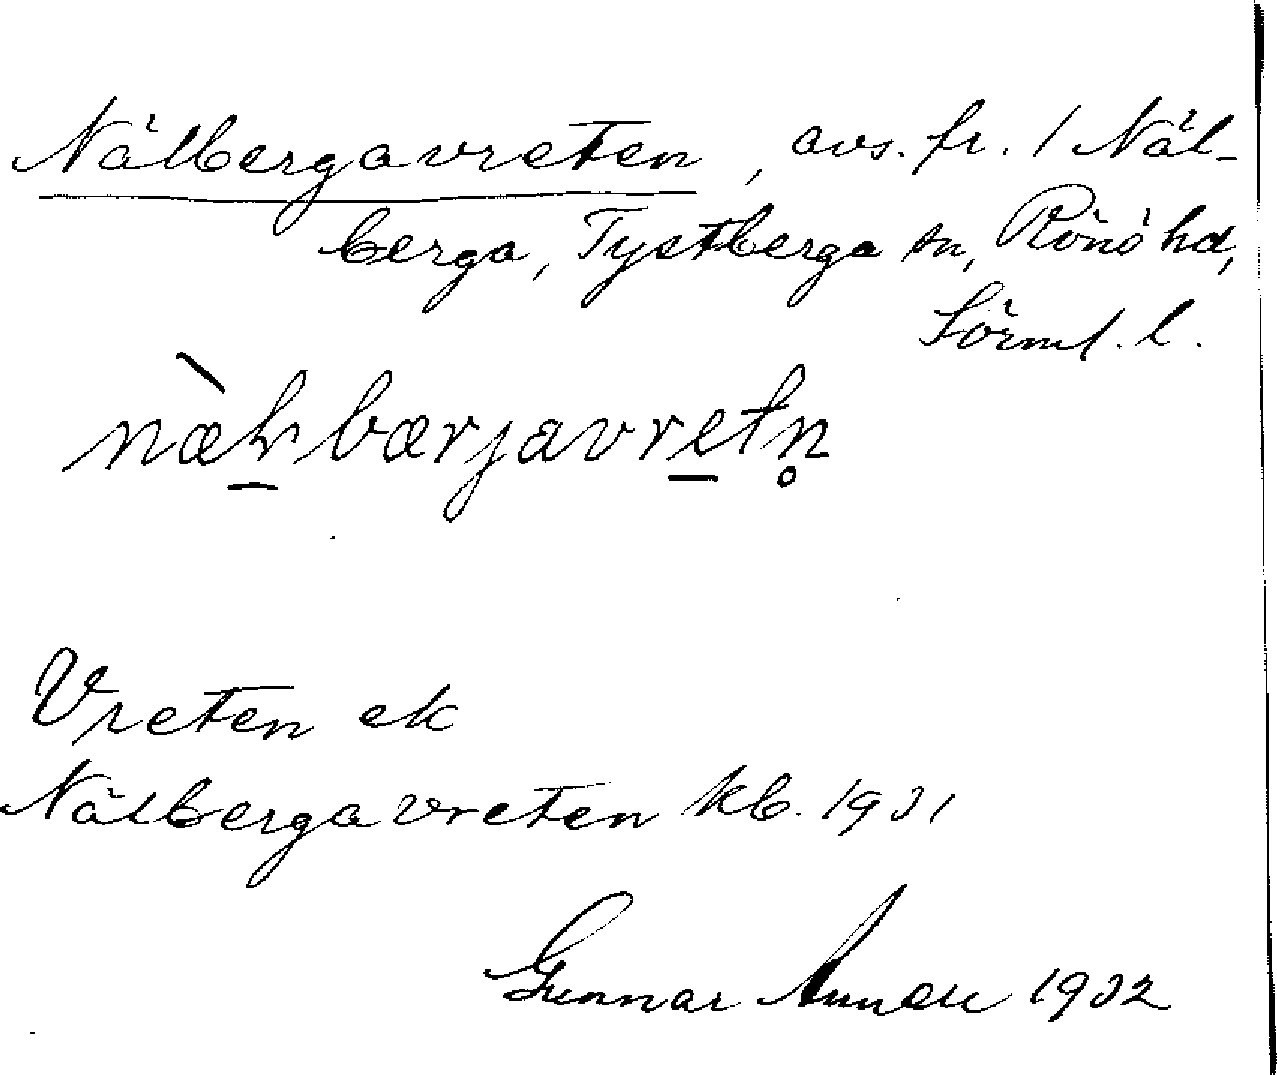 Nälbergavreten, avs. fr. 1 Näl-
berga, Tystberga sn, Rönö hd,
Sörml. l.
bærjavretn̥
Vreten ek
Nälbergavreten kb. 1931
Gunnar 1932